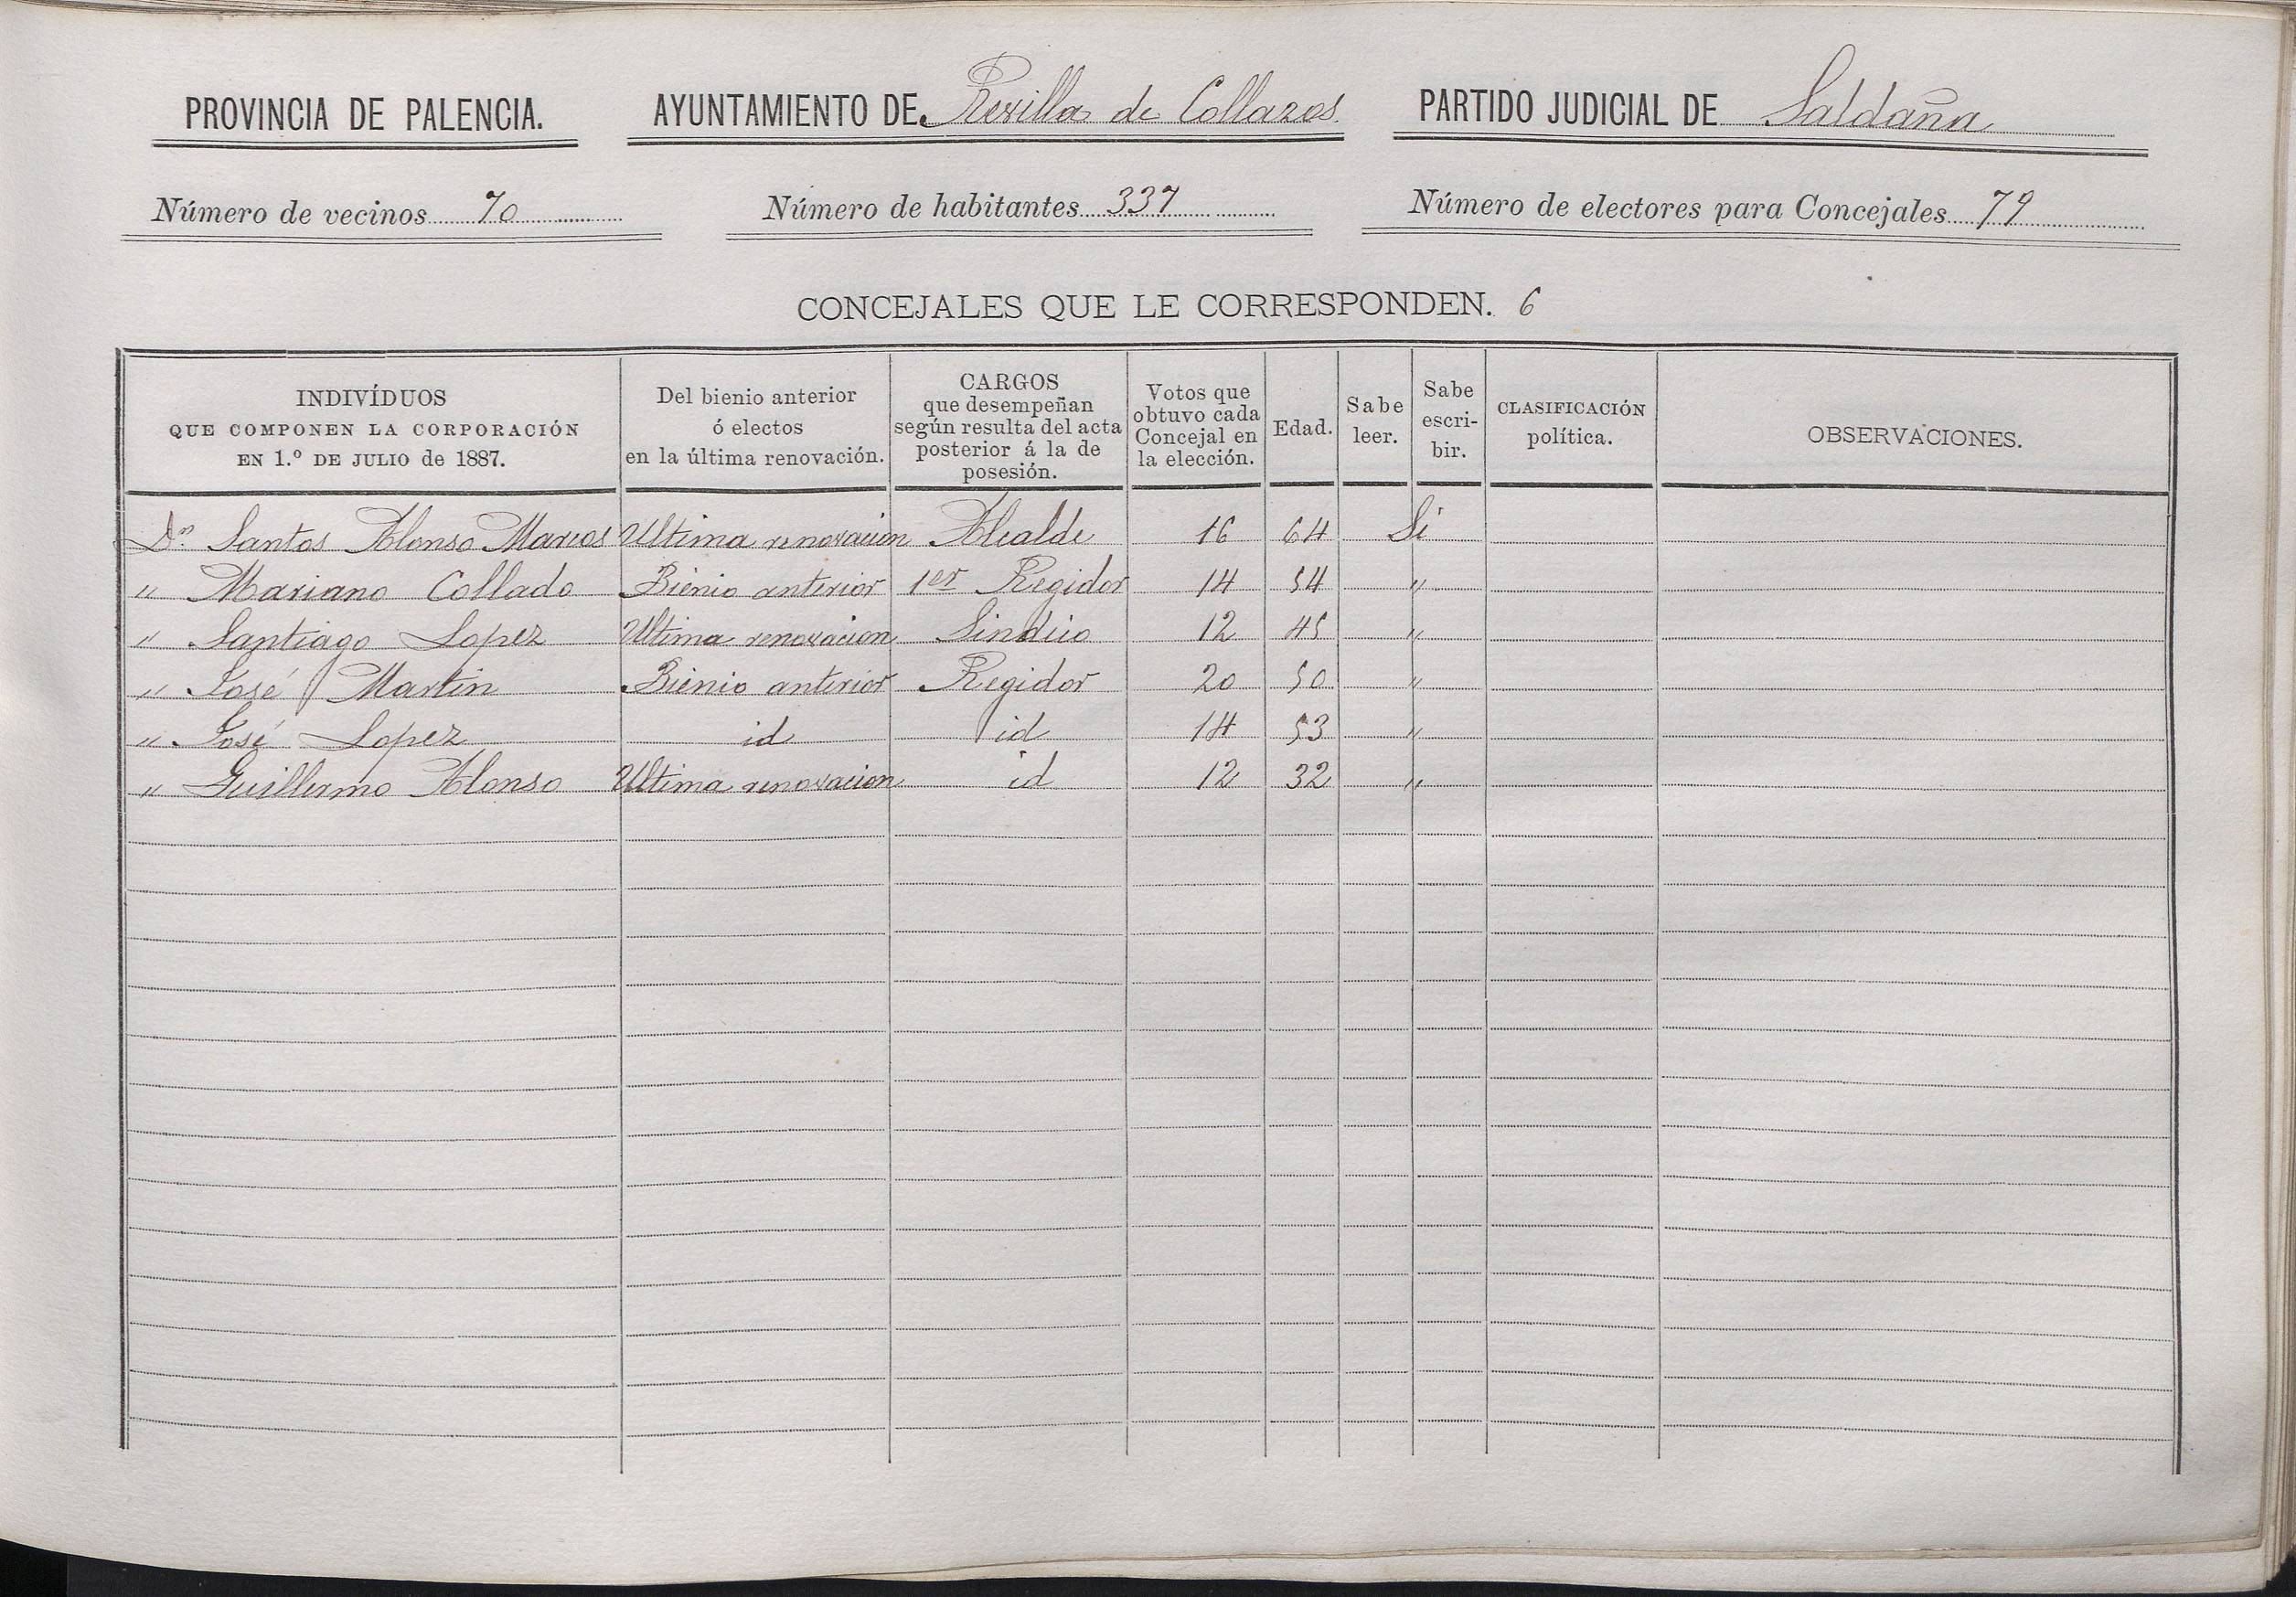 PROVINCIA DE PALENCIA. AYUNTAMIENTO DE Revilla de Collazos. PARTIDO JUDICIAL DE Saldaña
Número de vecinos 70 Número de habitantes 337 Número de electores para Concejales 79
CONCEJALES QUE LE CORRESPONDEN. 6
INDIVÍDUOS
QUE COMPONEN LA CORPORACIÓN
EN 1.º DE JULIO de 1887.
Del bienio anterior
ó electos
en la última renovación.
CARGOS
que desempeñan
según resulta del acta
posterior á la de
posesión.
Votos que
obtuvo cada
Concejal en
la elección.
Edad.
Sabe
leer.
Sabe
escri-
bir.
CLASIFICACIÓN
política.
OBSERVACIONES.
Dn. Santos Alonso Marcos Ultima renovacion Alcalde 16 64 Si
" Mariano Collado Bienio anterior 1er Regidor 14 54 "
" Santiago Lopez Ultima renovacion Sindico 12 45 "
" José Martin Bienio anterior Regidor 20 50 "
" José Lopez id id 14 53 "
" Guillermo Alonso Ultima renovacion id 12 32 "